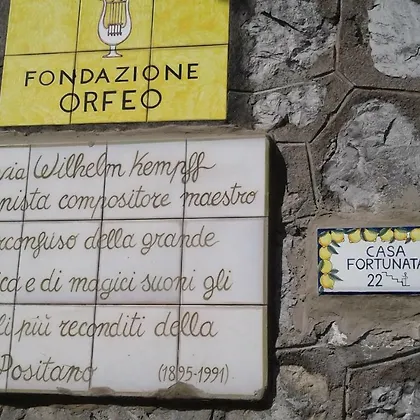 FONDAZIONE
ORFEO
via Wilhelm Kempff
nista compositore maestro
rconfuso della grande
ca e di magici suoni gli
li più reconditi della
Positano (1895-1991)
CASA
FORTUNATA
22